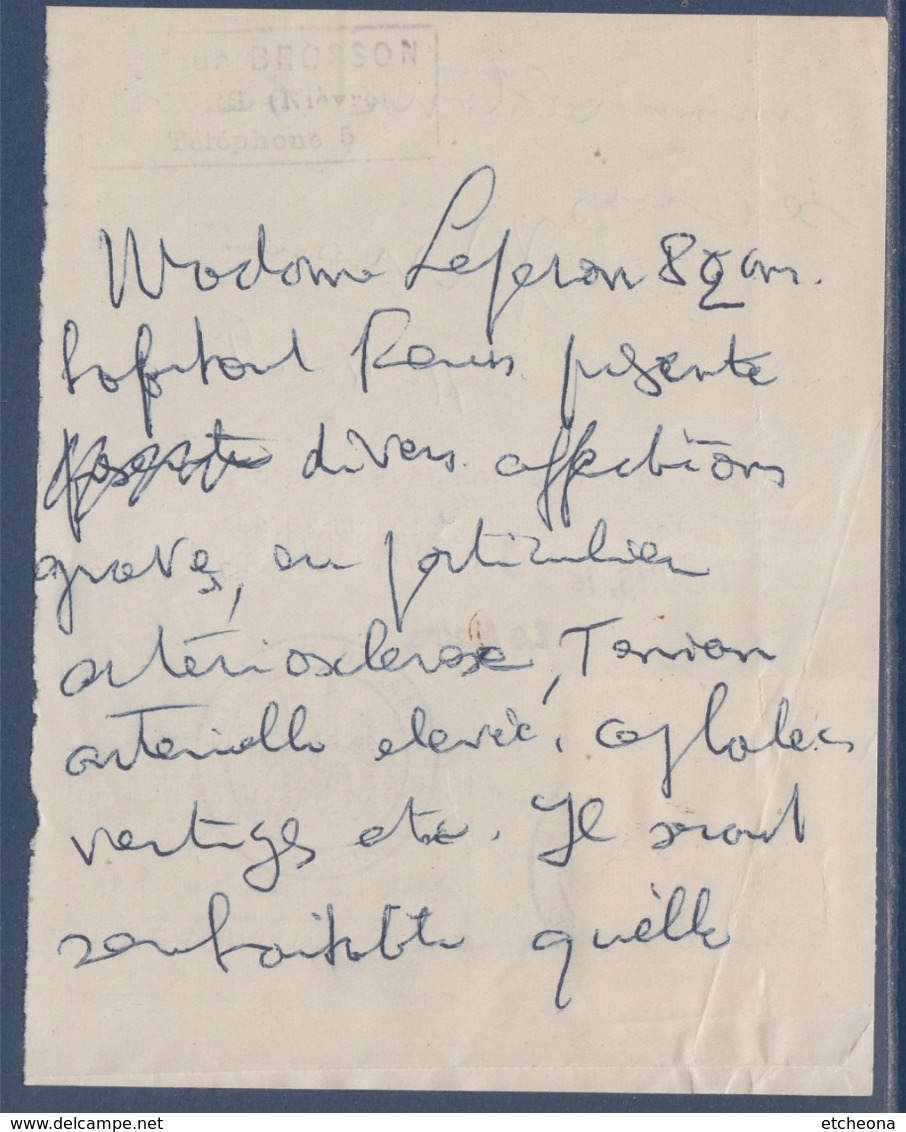 BROSSON
(Nièvre)
Téléphone 5
Madame Leseron 82 ans.
présente
divers affections
grave, en particulier
artériosclerose, Tension
arterielle elevée, cephalées
vertiges etc. Il serait
souhaitable qu'elle
etcheona